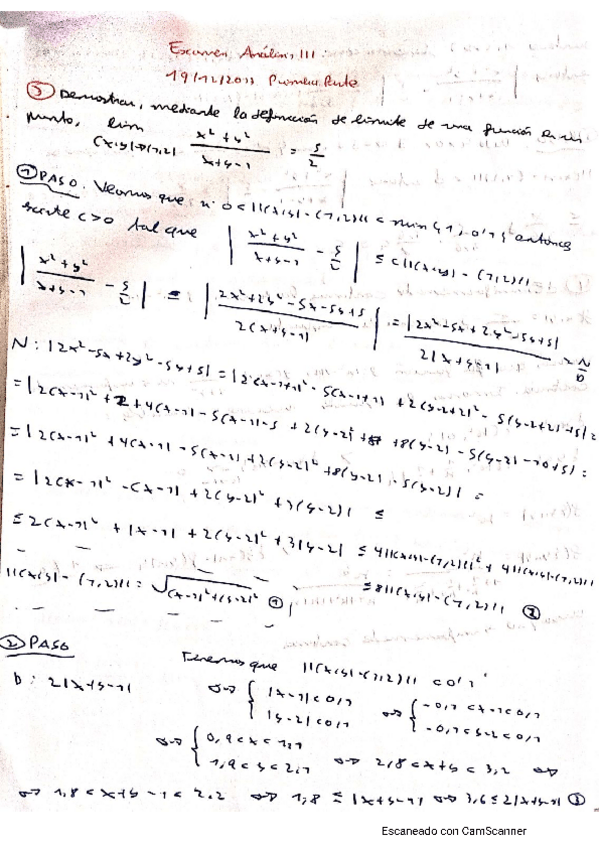 Examen Análisis III.
19/12/2013 Primera Parte
③ Demostrar, mediante la definición de límite de una función en un
punto, lim (x,y)→(1,2) x²+y² / x+y-1 = 5/2
① PASO. Veamos que si 0<||(x,y)-(1,2)||< min{1, 0'1} entonces
existe c>0 tal que | x²+y² / x+y-1 - 5/2 | ≤ c||(x,y)-(1,2)||
| x²+y² / x+y-1 - 5/2 | ≤ | 2x²+2y²-5x-5y+5 / 2(x+y-1) | = |2x²-5x+2y²-5y+5| / 2|x+y-1| ~ N/D
N: |2x²-5x+2y²-5y+5| = |2(x-1+1)²-5(x-1+1)+2(y-2+2)²-5(y-2+2)+5| =
= |2(x-1)²+2+4(x-1)-5(x-1)-5+2(y-2)²+8+8(y-2)-5(y-2)-10+5| =
= |2(x-1)²+4(x-1)-5(x-1)+2(y-2)²+8(y-2)-5(y-2)| =
= |2(x-1)²-(x-1)+2(y-2)²+3(y-2)| ≤
≤ 2(x-1)²+|x-1|+2(y-2)²+3|y-2| ≤ 4||(x,y)-(1,2)||²+4||(x,y)-(1,2)||
||(x,y)-(1,2)|| = √(x-1)²+(y-2)² ① ≤ 8||(x,y)-(1,2)|| ②
② PASO
Tenemos que ||(x,y)-(1,2)|| < 0'1
D: 2|x+y-1| ⇔ { |x-1|<0,1 |y-2|<0,1 ⇔ { -0,1<x-1<0,1 -0,1<y-2<0,1
⇔ { 0,9<x<1,1 1,9<y<2,1 ⇔ 2,8<x+y<3,2 ⇔
⇔ 1,8<x+y-1<2,2 ⇔ 1,8 ≤ |x+y-1| ⇔ 3,6≤2|x+y-1| ③
Escaneado con CamScanner